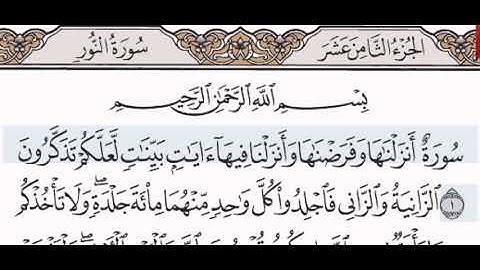 الجُزْءُ الثَّامِنَ عَشَرَ
سُورَةُ النُّورِ
بِسْمِ ٱللَّهِ ٱلرَّحْمَٰنِ ٱلرَّحِيمِ
سُورَةٌ أَنزَلْنَٰهَا وَفَرَضْنَٰهَا وَأَنزَلْنَا فِيهَآ ءَايَٰتٍۭ بَيِّنَٰتٍ لَّعَلَّكُمْ تَذَكَّرُونَ
١ ٱلزَّانِيَةُ وَٱلزَّانِى فَٱجْلِدُوا۟ كُلَّ وَٰحِدٍ مِّنْهُمَا مِا۟ئَةَ جَلْدَةٍ ۖ وَلَا تَأْخُذْكُم